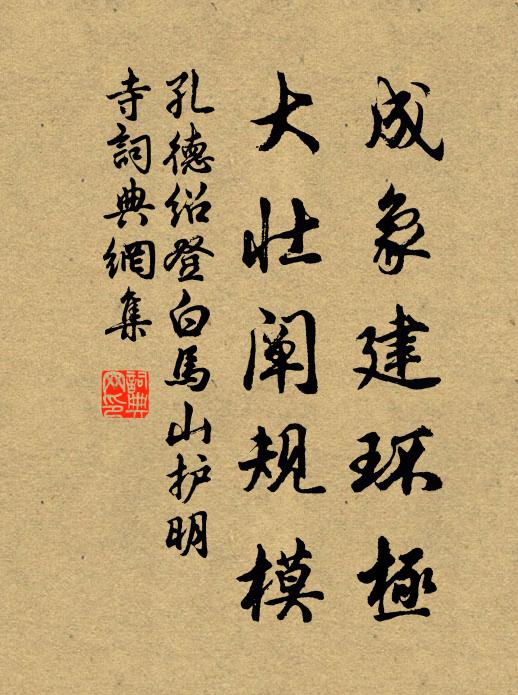 成象建环極
大壮阐规模
孔德绍登白馬山护明
寺詞典網集
詞典
网印